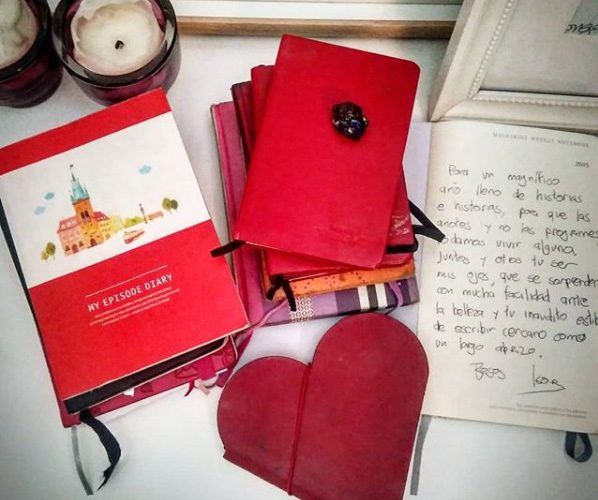 MY EPISODE DIARY
MOLESKINE WEEKLY NOTEBOOK
2015
Para un magnífico
año lleno de historias
e historias, para que las
anotes y no las programes,
podamos vivir alguna
juntos y otros tu ser
mis ojos, que se sorprenden
con mucha facilidad ante
la belleza y tu inaudito estilo
de escribir cercano como
un largo abrazo.
Besos